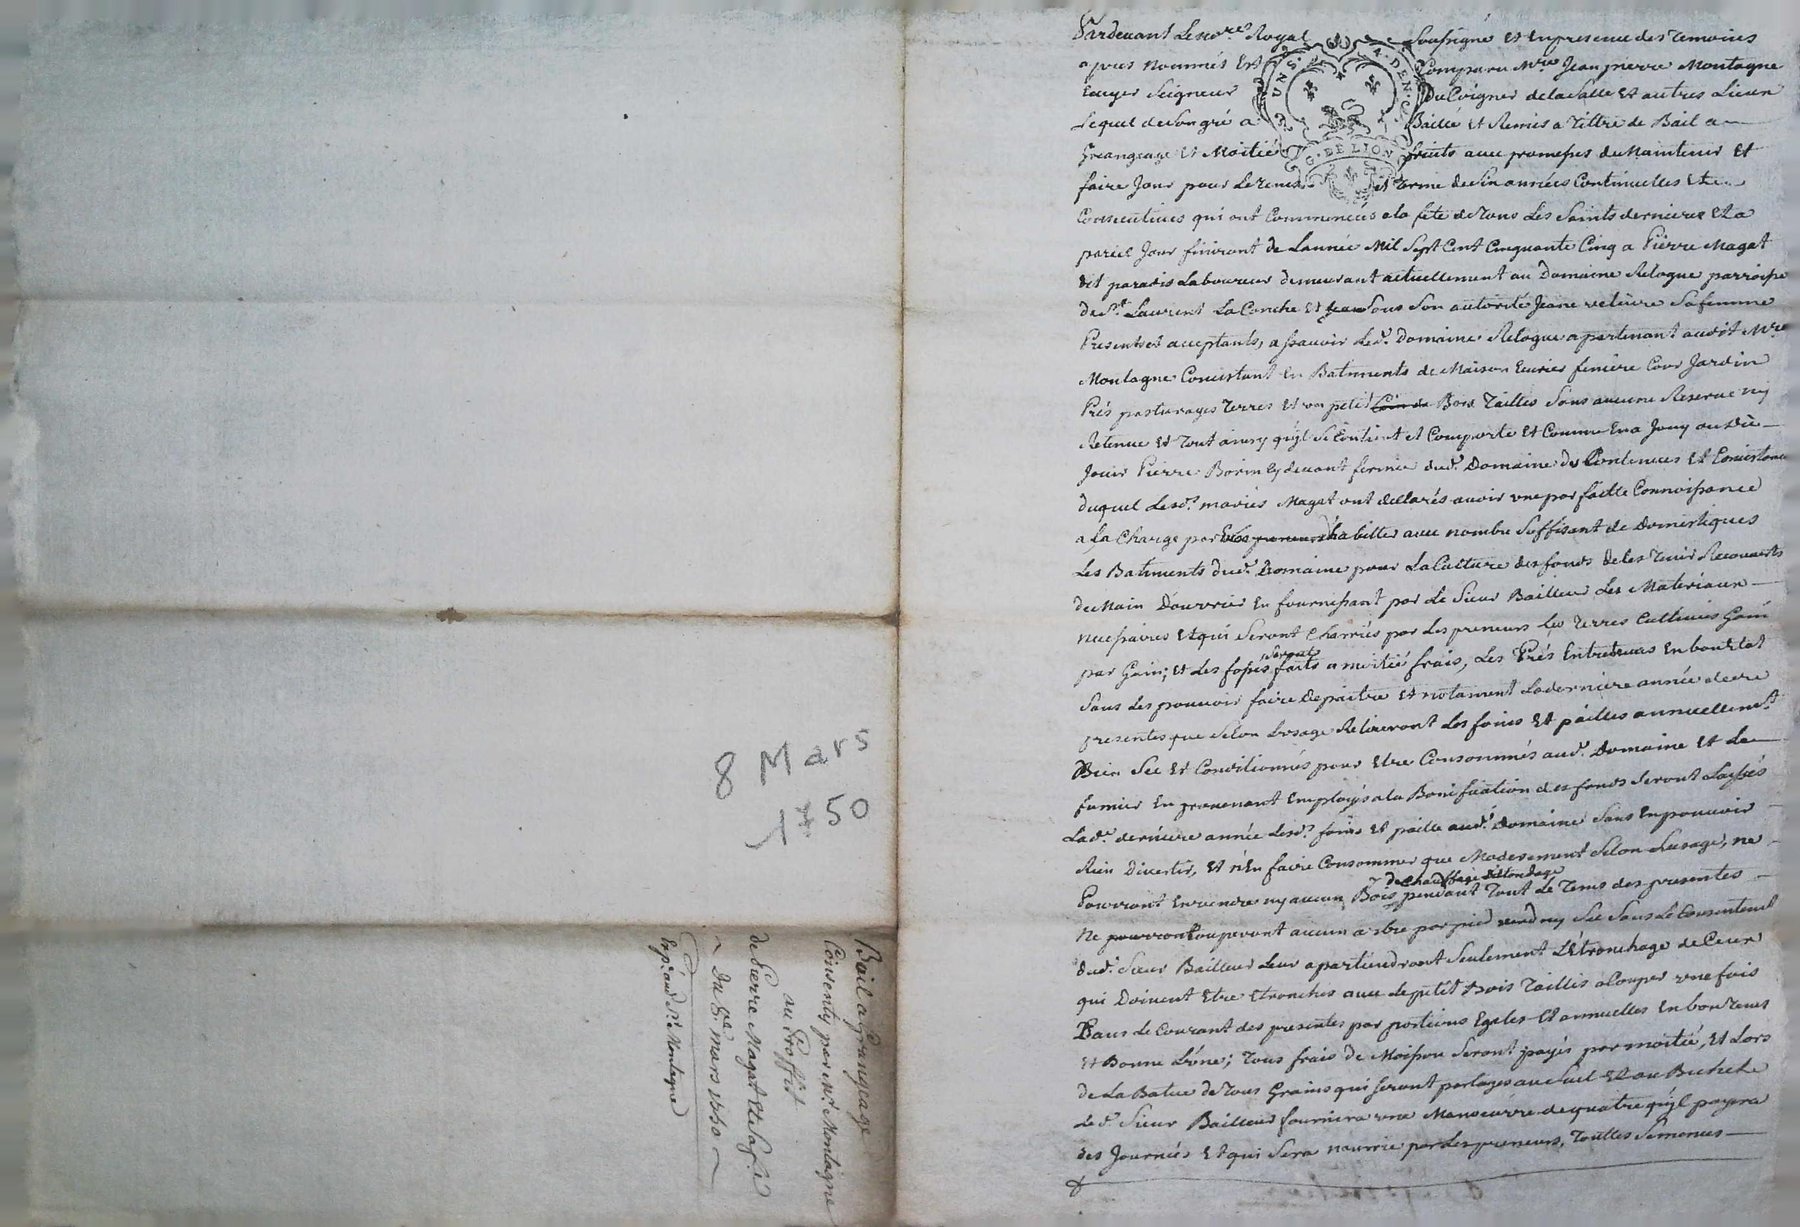 8 Mars
1750
Bail a Grangeage
Consenty par Mr. Montaigne
au Proffit
de Pierre Magat et sa fe.
Du 8e. mars 1750
Exp. aud. Sr. Montagne
Pardevant Le no.re Royal Soussigné et En presence des Temoins
apres nommés Est Comparu Mre. Jean pierre Montagne
Ecuyer Seigneur Du Poigner de la Salle et autres Lieux
Lequel de son gré a Baillé et Remis a Tiltre de Bail a
Grangeage et Moitié fruits avec promesses de Maintenir et
faire Jouir pour Le Tems et Terme de Six années Continuelles et
Consecutives qui ont Commencées a la fete de Tous Les Saints derniere et a
pareil Jour finiront de L'année Mil Sept Cent Cinquante Cinq a Pierre Magat
dit paradis Laboureur demeurant actuellement au Domaine Relogue parroisse
de St. Laurent La Conche et Sous Son autorité Jeane sa femme
Presents et acceptants, a sçavoir Le d. Domaine Relogue apartenant audit Mre.
Montagne Consistant En Batiments de Maison Ecuries feniere Cour Jardin
Prés pasturages Terres et un petit Coin de Bois Taillis Sans aucune Reserve ny
Retenue et Tout ainsy qu'yl se Contient et Comporte et Comme En a Jouy ou dû
Jouir Pierre Borin Cy devant fermier dud. Domaine de Contenues et Consistance
duquel Lesd. mariés Magat ont déclarés avoir une parfaitte Connoissance
a la Charge par Eux habitter avec nombre Suffisant de Domestiques
Les Batiments dud. Domaine pour La Culture des fonds de les Tenir Recouverts
de Main D'ouvrier En fournissant par Le Sieur Bailleur Les Materiaux
necessaires et qui Seront Charriés par Les preneurs Les Terres Cultivées Gain
par Gain; et Les fossés seront faits a moitié frais, Les Prés Entretenus En bon Etat
Sans Les pouvoir faire depaitre et notament La derniere année de ce
presentes que Selon L'usage Retireront Les foins et pailles annuellement
Bien Sec et Conditionnés pour Etre Consommés aud. Domaine et Le
fumier En provenant Employés a la Bonification des fonds Seront Laissés
La d. derniere année Lesd. foins et paille aud. Domaine Sans En pouvoir
Rien Divertir, et n'En faire Consommer que Moderement Selon L'usage, ne
de Chauffage
Pourront En vendre ny aucun Bois pendant Tout Le Tems des presentes
Ne pourront Couperont aucun arbre par pied verd ny Sec Sans Le Consentement
dud. Sieur Bailleur Leur apartiendront Seulement L'Etronchage de Ceux
qui Doivent Etre Etronchés avec Le petit Bois Taillis a Couper une fois
Dans Le Courant des presentes par portions Egales et annuelles En bon Tems
et Bonne Lune; Tous frais de Moisson Seront payés par moitié, et Lors
de La Batue de Tous Grains qui Seront partagés au Suel et au Bichet
Le d. Sieur Bailleur fournira une Manoeuvre de quatre qu'yl payera
des Journées et qui Sera nourrie par Les preneurs, Touttes Semences
G. DE LION